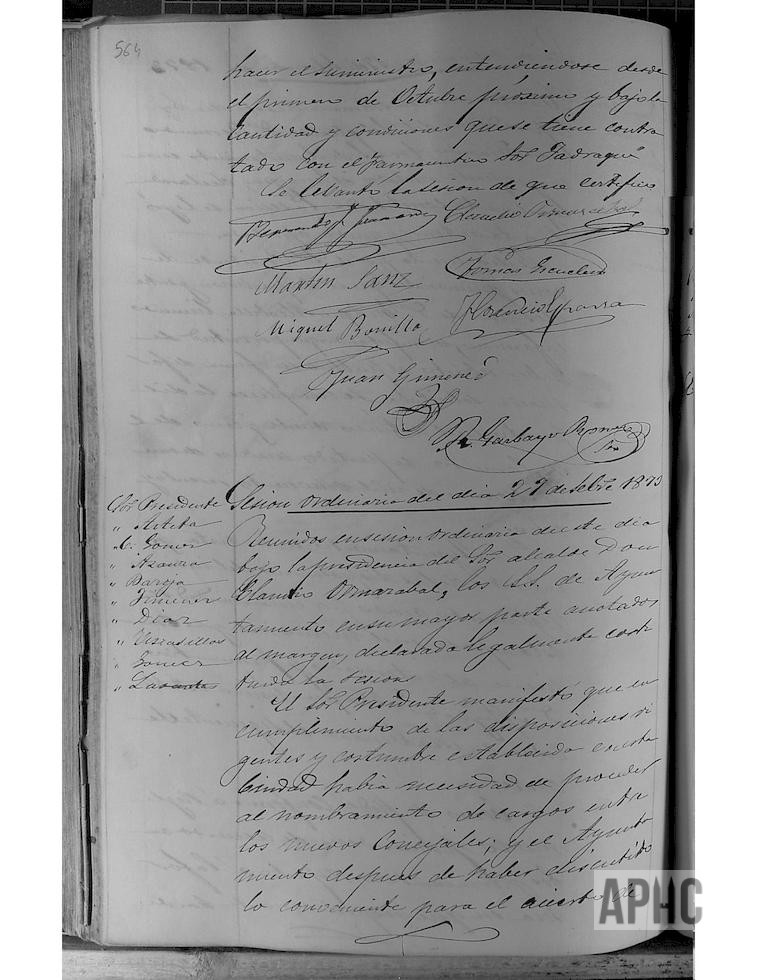 564
hacer el suministro, entendiendose desde
el primero de Octubre próximo y bajo la
cantidad y condiciones que se tiene contra
tado con el farmaceutico Sor
Se levantó la sesion de que certifico
Claudio
Martin Sanz
Tomas
Miguel Bonilla
Florencio Esparza
Juan Gimenez
Garbayo
Sesion ordinaria del dia 27 de Sebre 1873
Sor Presidente
" Arteta
" C. Gomez
" Azcarra
" Baroja
" Jimenez
" Diaz
" Gomez
Reunidos en sesion ordinaria de este dia
bajo la presidencia del Sor alcalde Don
Claudio Ormazabal, los S.S. de Ayun
tamiento en su mayor parte anotados
al margen, declarada legalmente cost
tuida la sesion
El Sor Presidente manifestó que en
cumplimiento de las disposiciones vi
gentes y costumbre establecida en esta
Ciudad habia necesidad de proceder
al nombramiento de cargos entre
los nuevos Concejales; y el Ayunta
miento despues de haber discutido
lo conveniente para el acierto de
APHC